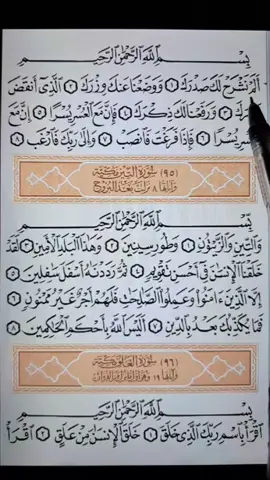 بِسْمِ اللَّهِ الرَّحْمَٰنِ الرَّحِيمِ
أَلَمْ نَشْرَحْ لَكَ صَدْرَكَ ١ وَوَضَعْنَا عَنكَ وِزْرَكَ ٢ الَّذِي أَنقَضَ
وَرَفَعْنَا لَكَ ذِكْرَكَ ٤ فَإِنَّ مَعَ الْعُسْرِ يُسْرًا ٥ إِنَّ مَعَ
يُسْرًا ٦ فَإِذَا فَرَغْتَ فَانصَبْ ٧ وَإِلَىٰ رَبِّكَ فَارْغَب ٨
(٩٥) سُورَةُ التِّينِ مَكِّيَّة
وَآيَاتُهَا ٨ نَزَلَتْ بَعْدَ البُرُوجِ
بِسْمِ اللَّهِ الرَّحْمَٰنِ الرَّحِيمِ
وَالتِّينِ وَالزَّيْتُونِ ١ وَطُورِ سِينِينَ ٢ وَهَٰذَا الْبَلَدِ الْأَمِينِ ٣ لَقَدْ
خَلَقْنَا الْإِنسَٰنَ فِي أَحْسَنِ تَقْوِيمٍ ٤ ثُمَّ رَدَدْنَٰهُ أَسْفَلَ سَٰفِلِينَ ٥
إِلَّا الَّذِينَ ءَامَنُوا وَعَمِلُوا الصَّٰلِحَٰتِ فَلَهُمْ أَجْرٌ غَيْرُ مَمْنُونٍ ٦
فَمَا يُكَذِّبُكَ بَعْدُ بِالدِّينِ ٧ أَلَيْسَ اللَّهُ بِأَحْكَمِ الْحَٰكِمِينَ ٨
(٩٦) سُورَةُ العَلَقِ مَكِّيَّة
وَآيَاتُهَا ١٩
بِسْمِ اللَّهِ الرَّحْمَٰنِ الرَّحِيمِ
اقْرَأْ بِاسْمِ رَبِّكَ الَّذِي خَلَقَ ١ خَلَقَ الْإِنسَٰنَ مِنْ عَلَقٍ ٢ اقْرَأْ